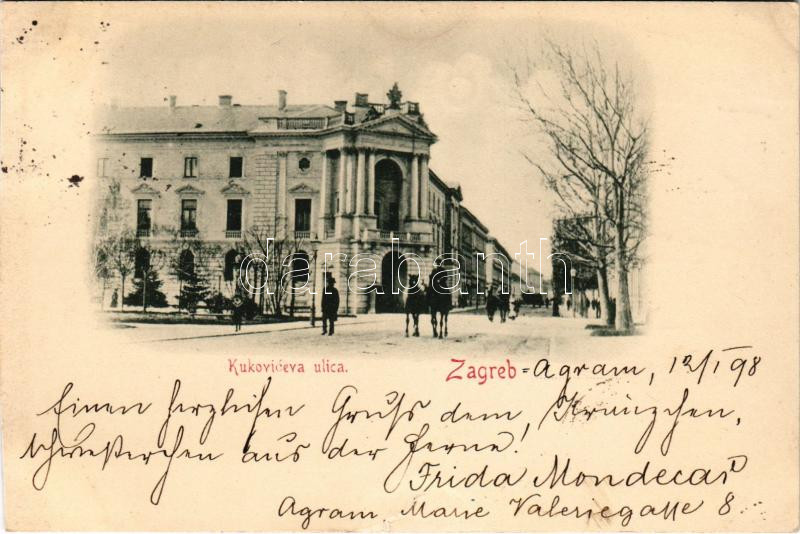 darabanth
Kukovićeva ulica.
Zagreb = Agram, 12/1 98
Einen herzlichen Gruss dem „Kränzchen„
schwesterchen aus der Ferne!
Frida Mondecar
Agram Marie Valeriegasse 8.